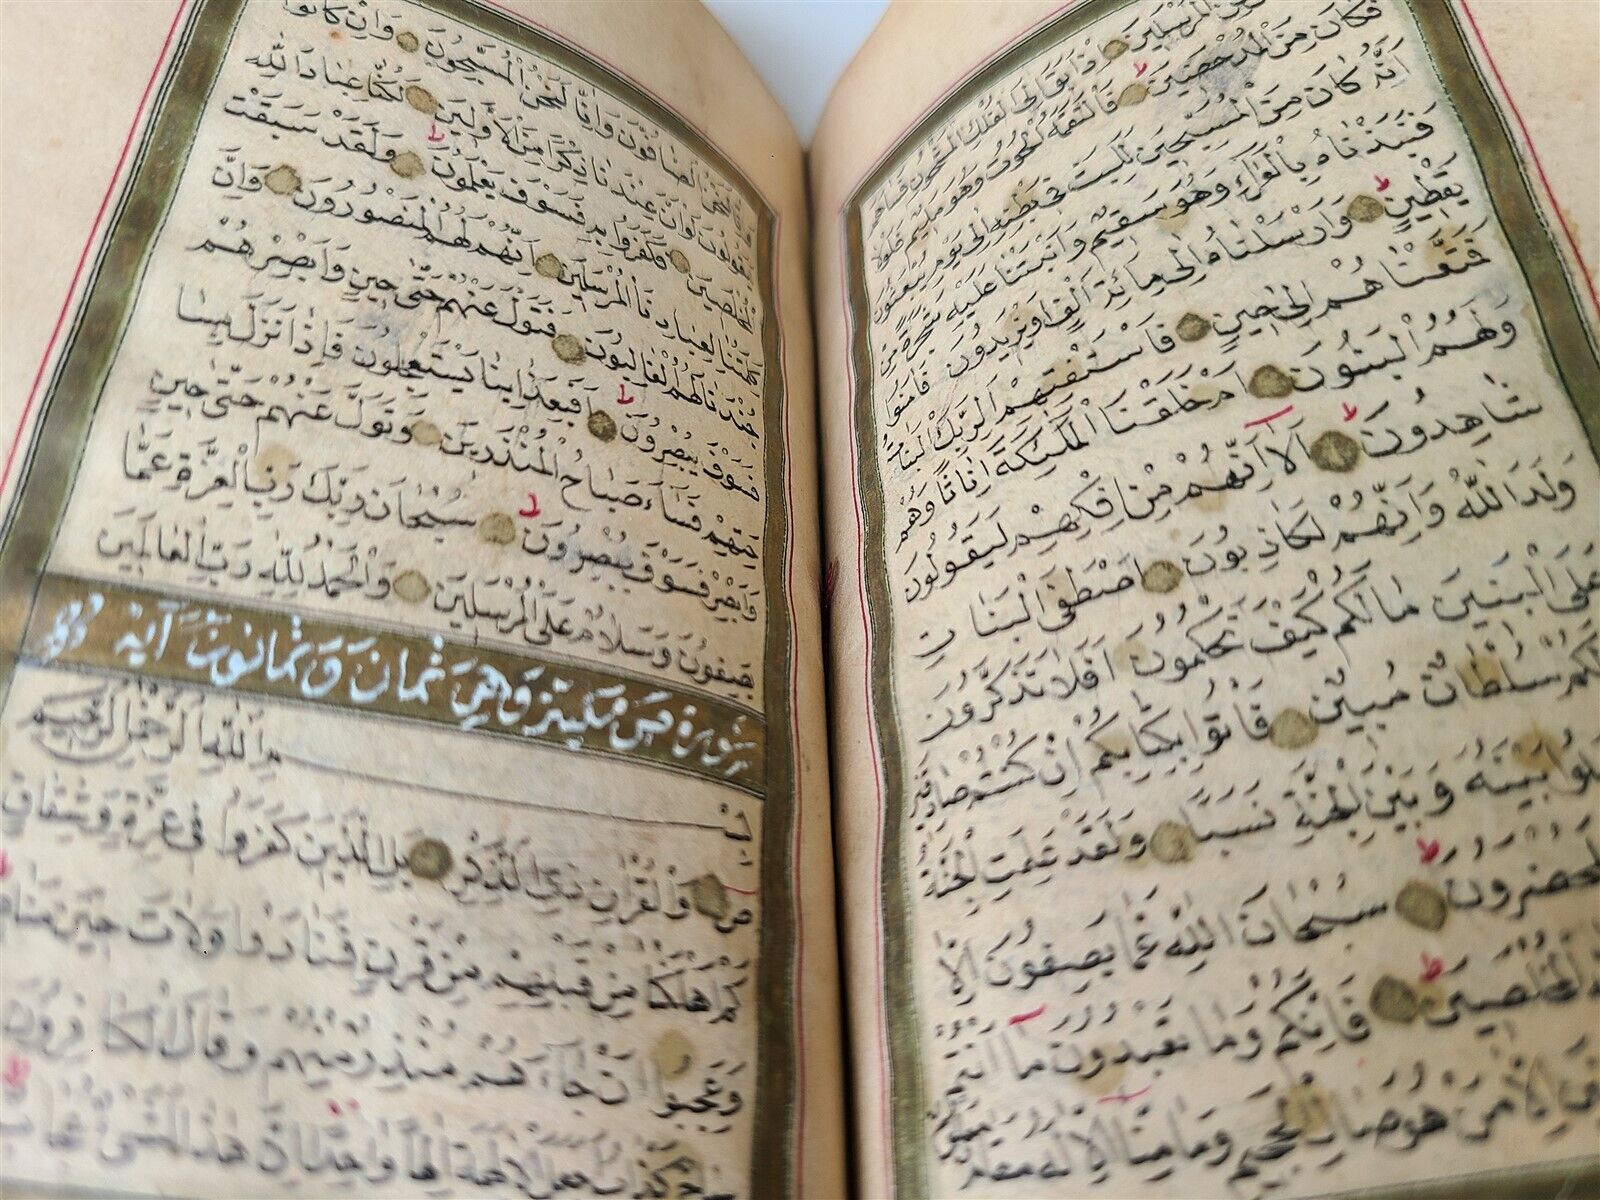 اذ ابق الى الفلك المشحون فساهم
فكان من المدحضين فالتقمه الحوت وهو مليم فلولا
انه كان من المسبحين للبث فى بطنه الى يوم يبعثون
فنبذناه بالعراء وهو سقيم وانبتنا عليه شجرة من
يقطين وارسلناه الى مائة الف او يزيدون فامنوا
فمتعناهم الى حين فاستفتهم الربك البنات
ولهم البنون ام خلقنا الملئكة اناثا وهم
شاهدون الا انهم من افكهم ليقولون
ولد الله وانهم لكاذبون اصطفى البنات
على البنين مالكم كيف تحكمون افلا تذكرون
لكم سلطان مبين فاتوا بكتابكم ان كنتم صادقين
بينه وبين الجنة نسبا ولقد علمت الجنة
لمحضرون سبحان الله عما يصفون الا
المخلصين فانكم وما تعبدون ما انتم
الا من هو صال الجحيم وما منا الا له مقام
الصافون وانا لنحن المسبحون وان كانوا
ليقولون لو ان عندنا ذكرا من الاولين لكنا عباد الله
المخلصين فكفروا به فسوف يعلمون ولقد سبقت
كلمتنا لعبادنا المرسلين انهم لهم المنصورون وان
جندنا لهم الغالبون فتول عنهم حتى حين وابصرهم
فسوف يبصرون افبعذابنا يستعجلون فاذا نزل بسا
حتهم فساء صباح المنذرين وتول عنهم حتى حين
وابصر فسوف يبصرون سبحان ربك رب العزة عما
يصفون وسلام على المرسلين والحمد لله رب العالمين
سورة ص مكية وهى ثمان وثمانون آية
بسم الله الرحمن الرحيم
ص والقران ذى الذكر بل الذين كفروا فى عزة وشقاق
كم اهلكنا من قبلهم من قرن فنادوا ولات حين مناص
وعجبوا ان جاءهم منذر منهم وقال الكافرون
كذاب اجعل الالهة الها واحدا ان هذا لشىء عجاب